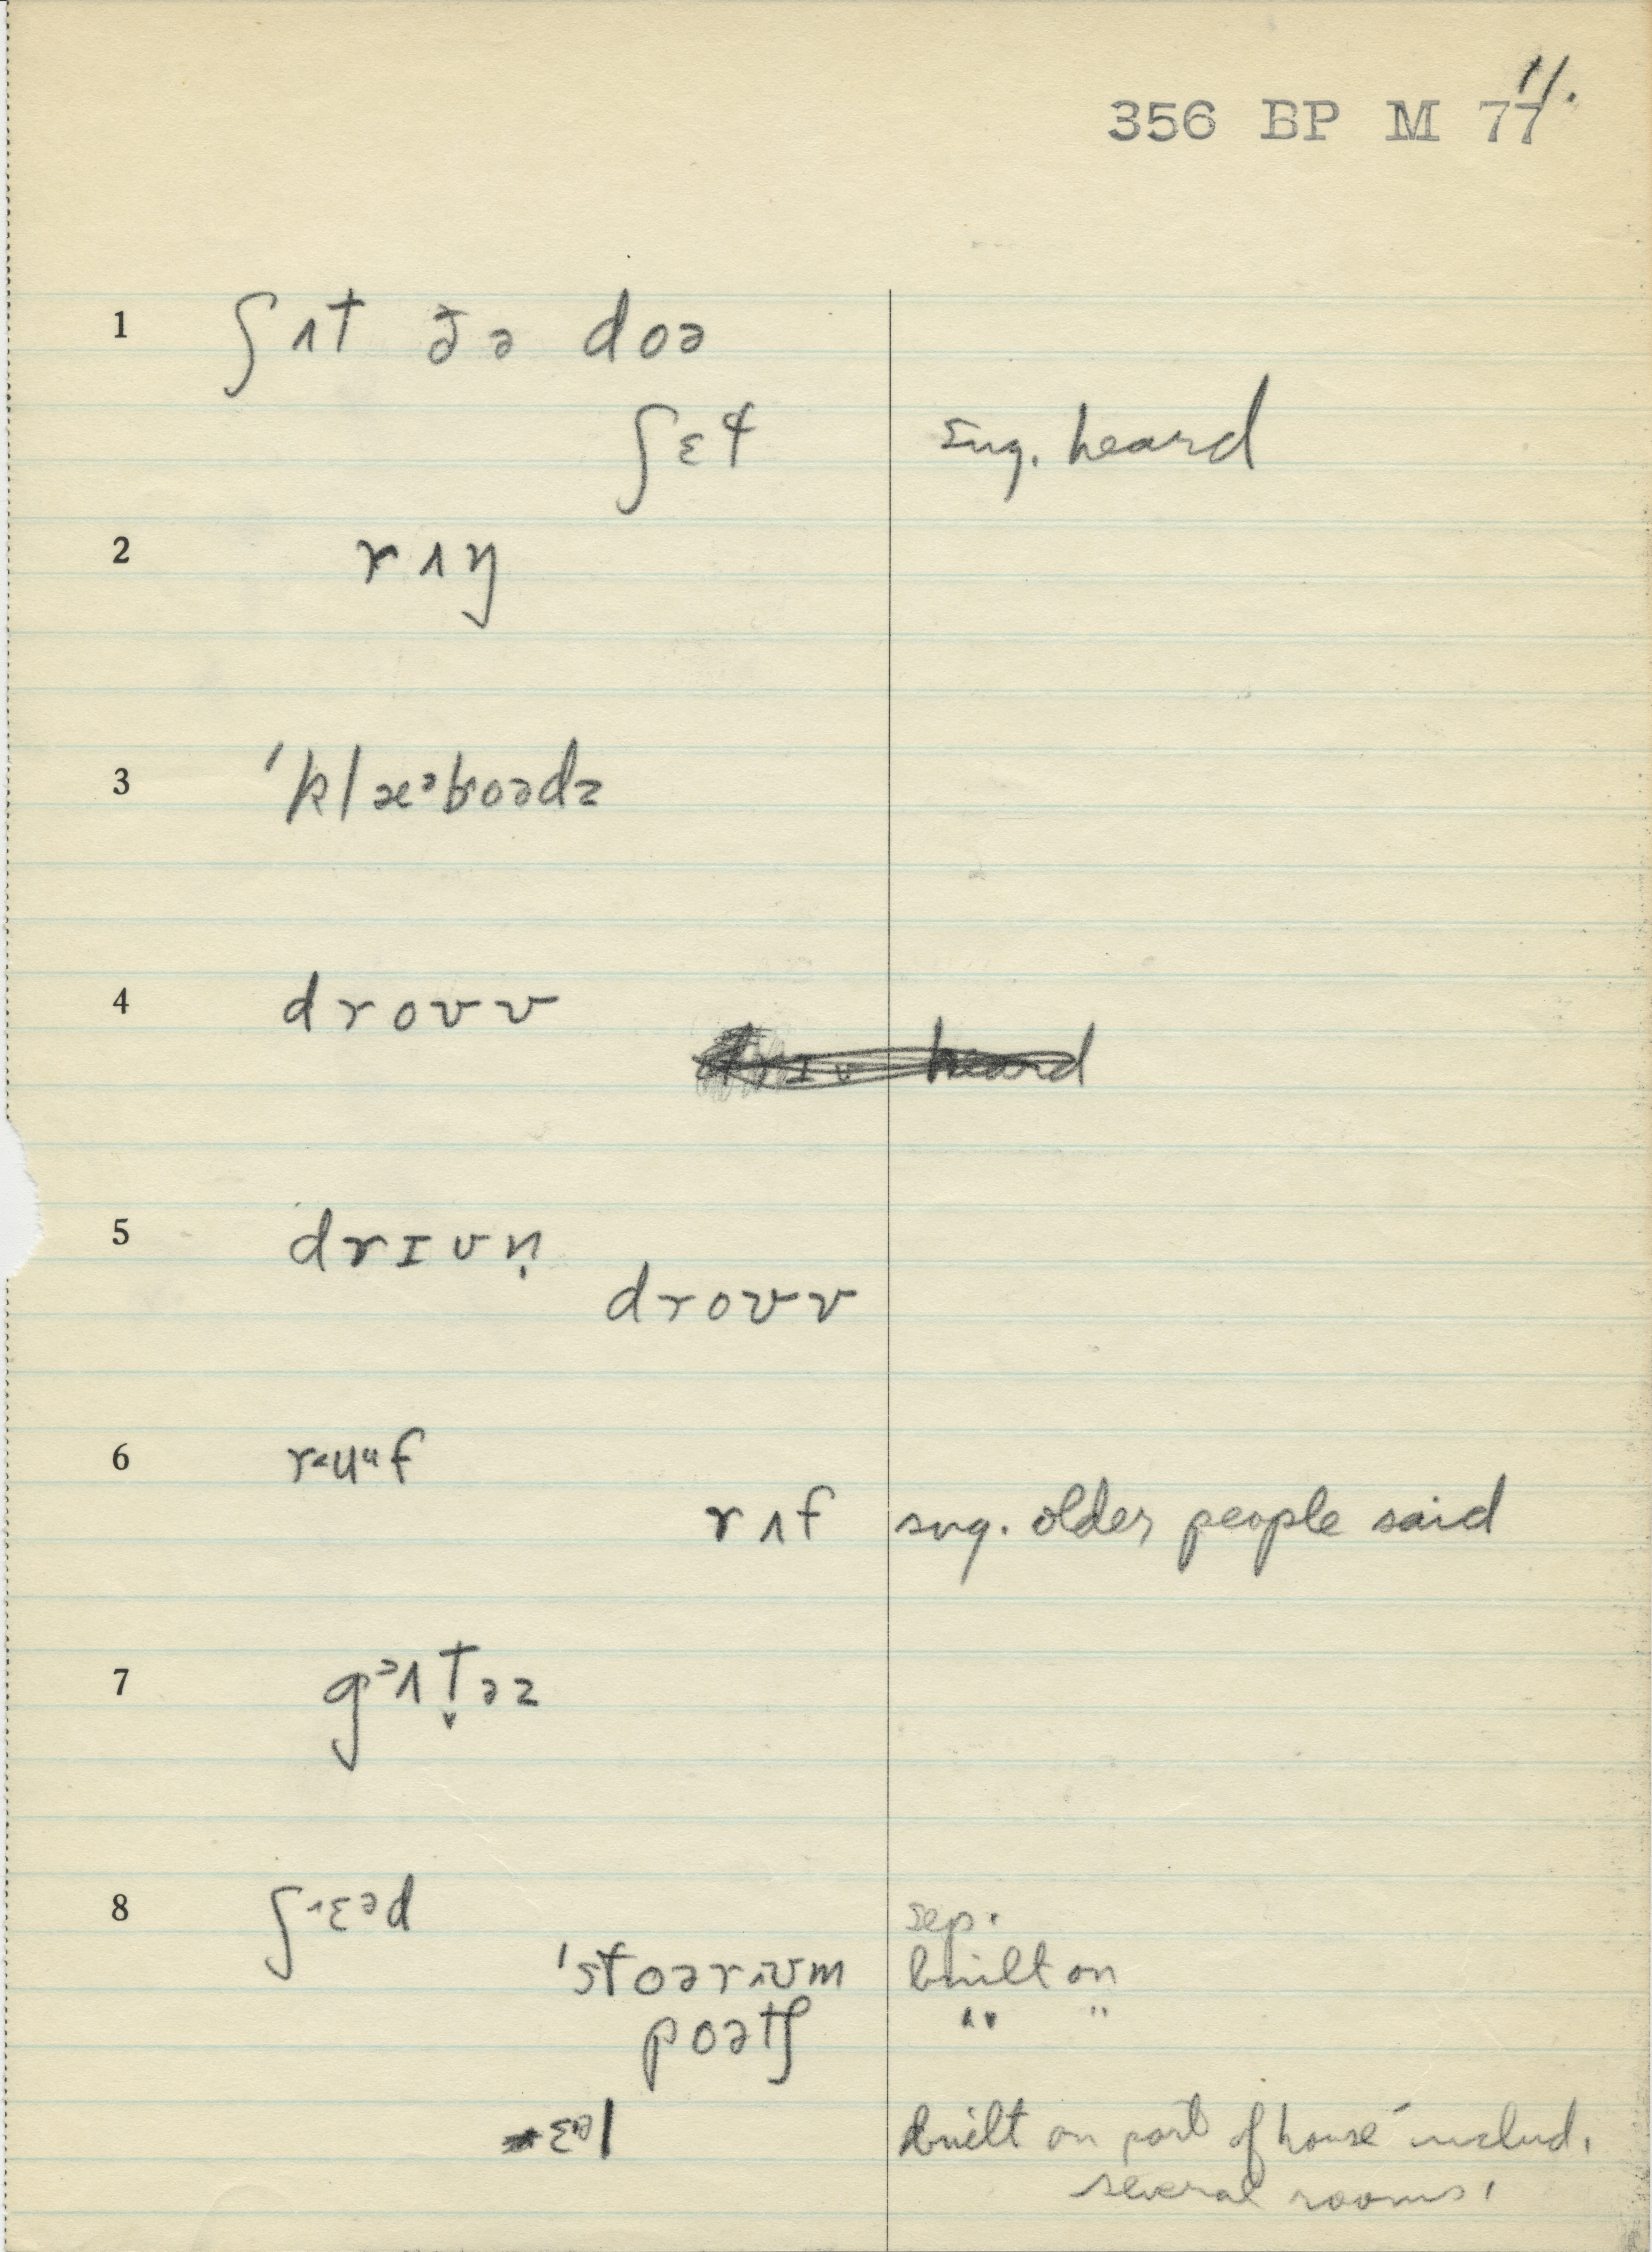 11.
356 BP M 77
1 ʃʌt ðə doə
ʃɛt sug. heard
2 rʌŋ
3 ˈklæᵊboədz
4 droʊv
heard
5 drɪvn̩
droʊv
6 r˂uᵘf
rʌf sug. older people said
7 gᵊʌt̬əz
8 ʃ˧ɛᵊd sep.
ˈstoərʌʊm built on
poətʃ " "
ɛᵊl built on part of house includ.
several rooms.